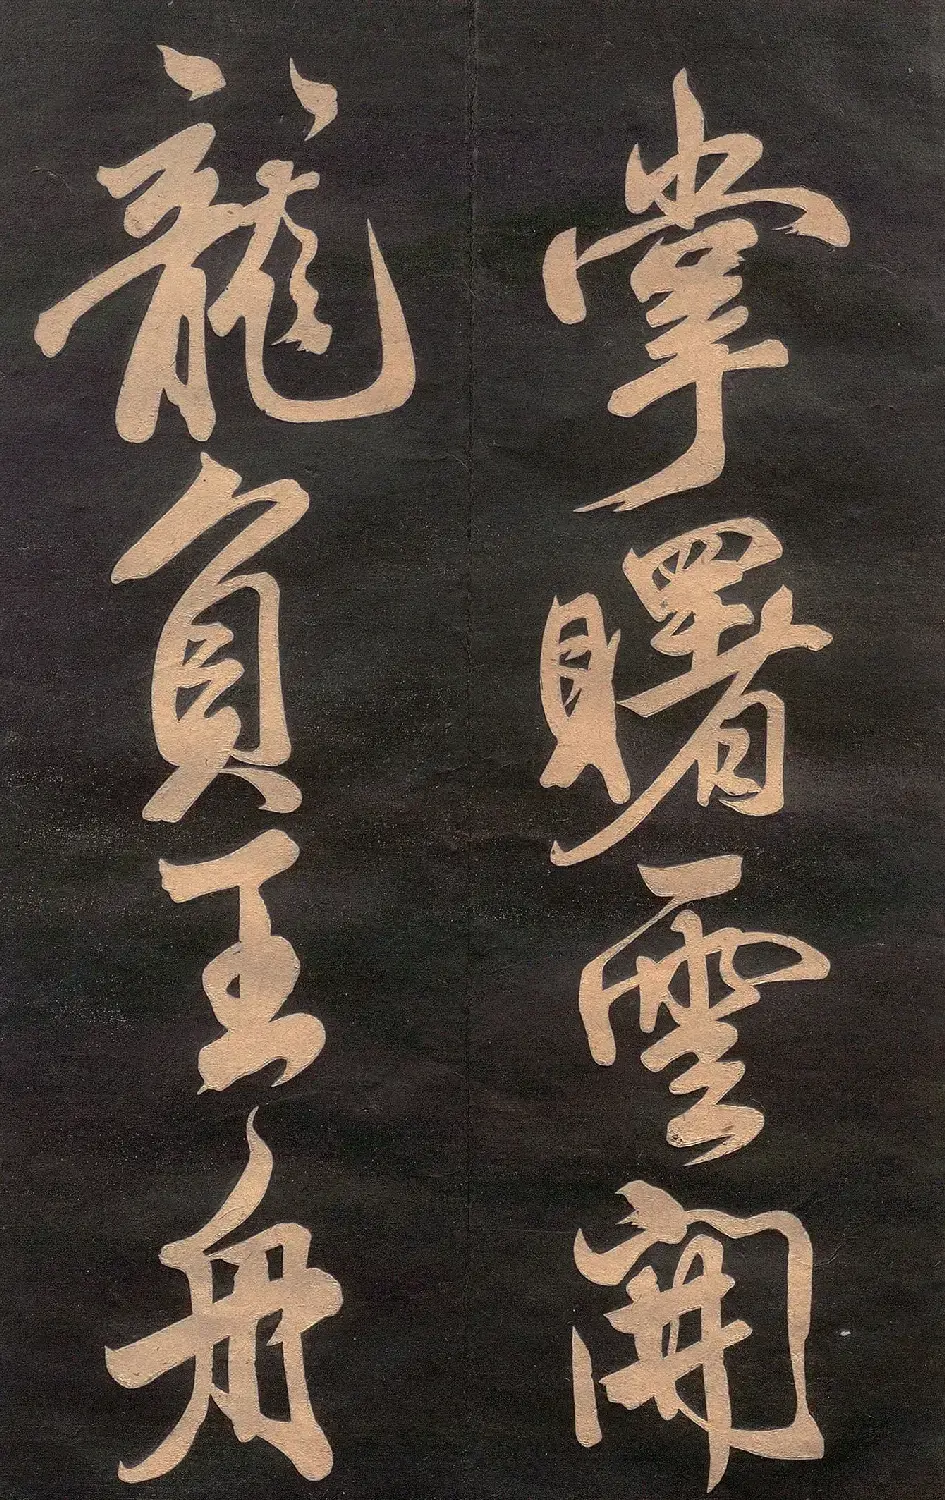 掌曙雲開
龍負王舟